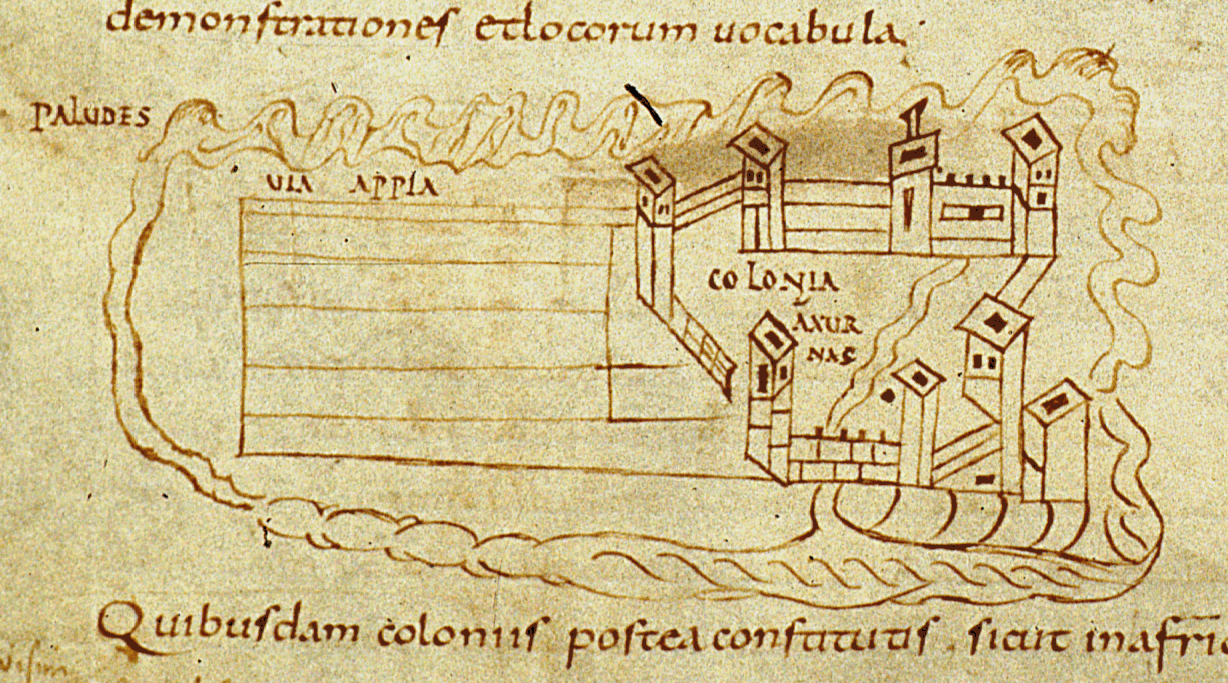 demonstrationes et locorum uocabula.
PALUDES
UIA APPIA
COLONIA
AXUR
NAS
Quibusdam coloniis postea constitutis. sicut in afri